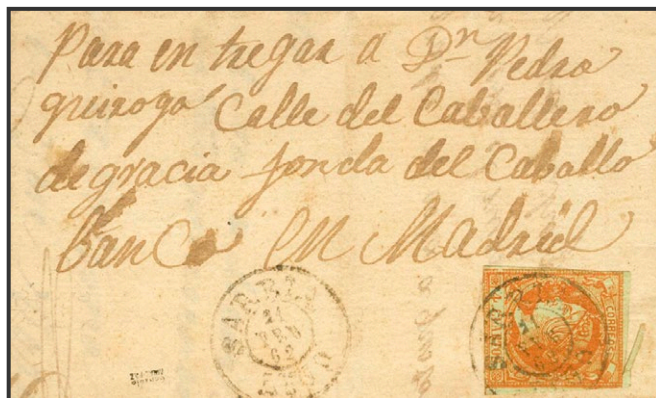 Para en tregar a Dn Pedro
quiroga Calle del Caballero
de gracia fonda del Caballo
banco en Madrid
SARRIA
21
62
CORREOS